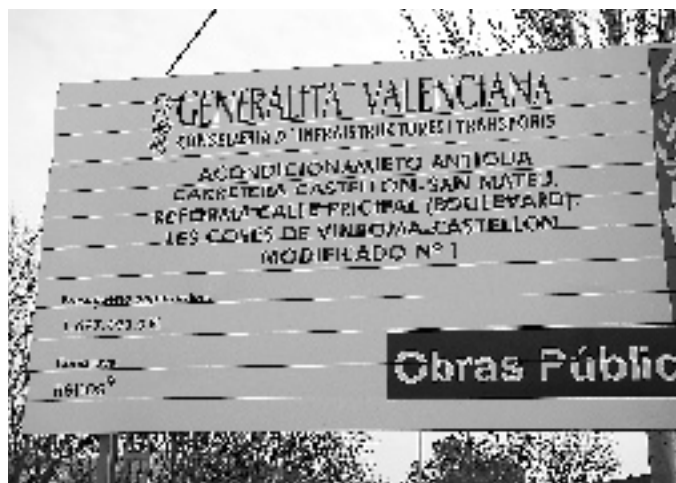 GENERALITAT VALENCIANA
CONSELLERIA D'INFRAESTRUCTURES I TRANSPORTS
ACONDICIONAMIETO ANTIGUA
CARRETERA CASTELLON-SAN MATEU.
REFORMA CALLE PRICIPAL (BOULEVARD).
LES COVES DE VINROMA-CASTELLON
MODIFICADO Nº 1
Obras Públic